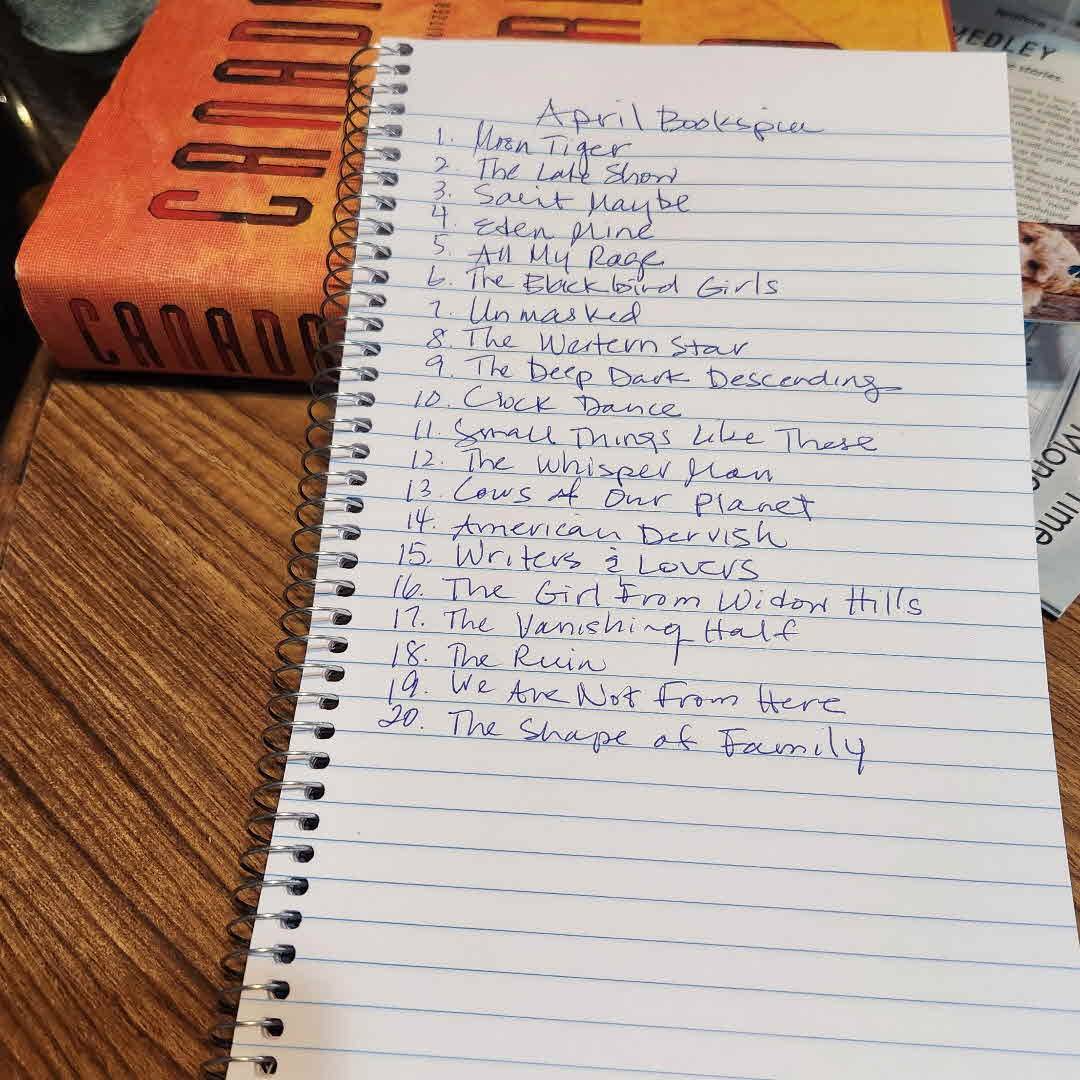 CANADA
CANADA
MEDLEY
stories
Time
April Bookspin
1. Moon Tiger
2. The Late Show
3. Saint Maybe
4. Eden Mine
5. All My Rage
6. The Blackbird Girls
7. Unmasked
8. The Western Star
9. The Deep Dark Descending
10. Clock Dance
11. Small Things Like These
12. The Whisper Man
13. Cows of Our Planet
14. American Dervish
15. Writers & Lovers
16. The Girl From Widow Hills
17. The Vanishing Half
18. The Ruin
19. We Are Not From Here
20. The Shape of Family